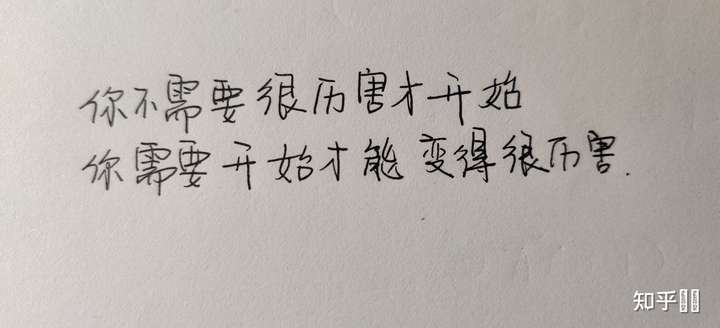 你不需要很历害才开始
你需要开始才能变得很历害.
知乎